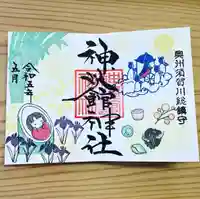 奥州須賀川総鎮守
神炊館神社
令和五年
五月